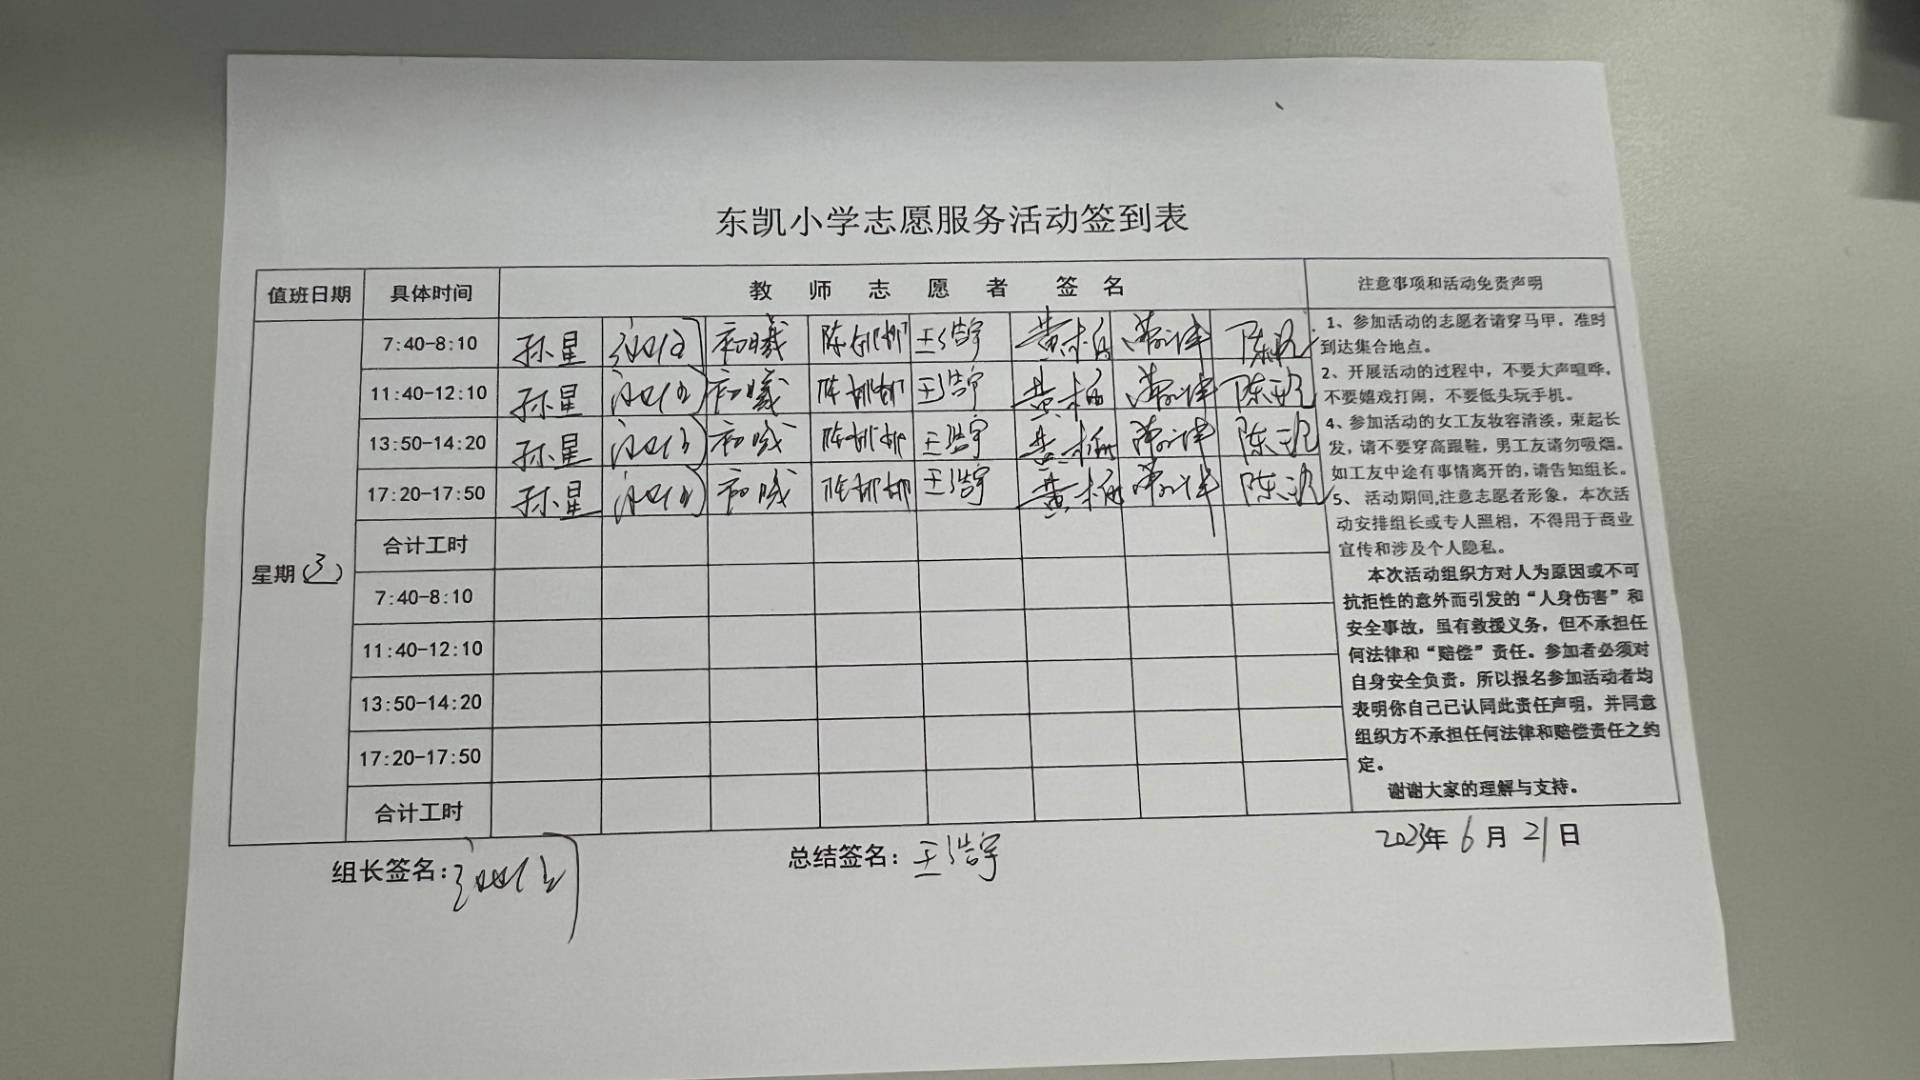 东凯小学志愿服务活动签到表
值班日期 具体时间 教师志愿者 签名 注意事项和活动免责声明
星期(3)
7:40-8:10 孙星 初曦 陈娜娜 王浩宇 黄杨 陈
11:40-12:10 孙星 初曦 陈娜娜 王浩宇 黄杨 陈
13:50-14:20 孙星 初曦 陈娜娜 王浩宇 黄杨 陈
17:20-17:50 孙星 初曦 陈娜娜 王浩宇 黄杨 陈
合计工时
7:40-8:10
11:40-12:10
13:50-14:20
17:20-17:50
合计工时
1、参加活动的志愿者请穿马甲，准时
到达集合地点。
2、开展活动的过程中，不要大声喧哗，
不要嬉戏打闹，不要低头玩手机。
4、参加活动的女工友妆容清淡，束起长
发，请不要穿高跟鞋，男工友请勿吸烟。
如工友中途有事情离开的，请告知组长。
5、 活动期间,注意志愿者形象，本次活
动安排组长或专人照相，不得用于商业
宣传和涉及个人隐私。
本次活动组织方对人为原因或不可
抗拒性的意外而引发的“人身伤害”和
安全事故，虽有救援义务，但不承担任
何法律和“赔偿”责任。参加者必须对
自身安全负责，所以报名参加活动者均
表明你自己已认同此责任声明，并同意
组织方不承担任何法律和赔偿责任之约
定。
谢谢大家的理解与支持。
组长签名: 总结签名：王浩宇 2023年 6 月 21 日